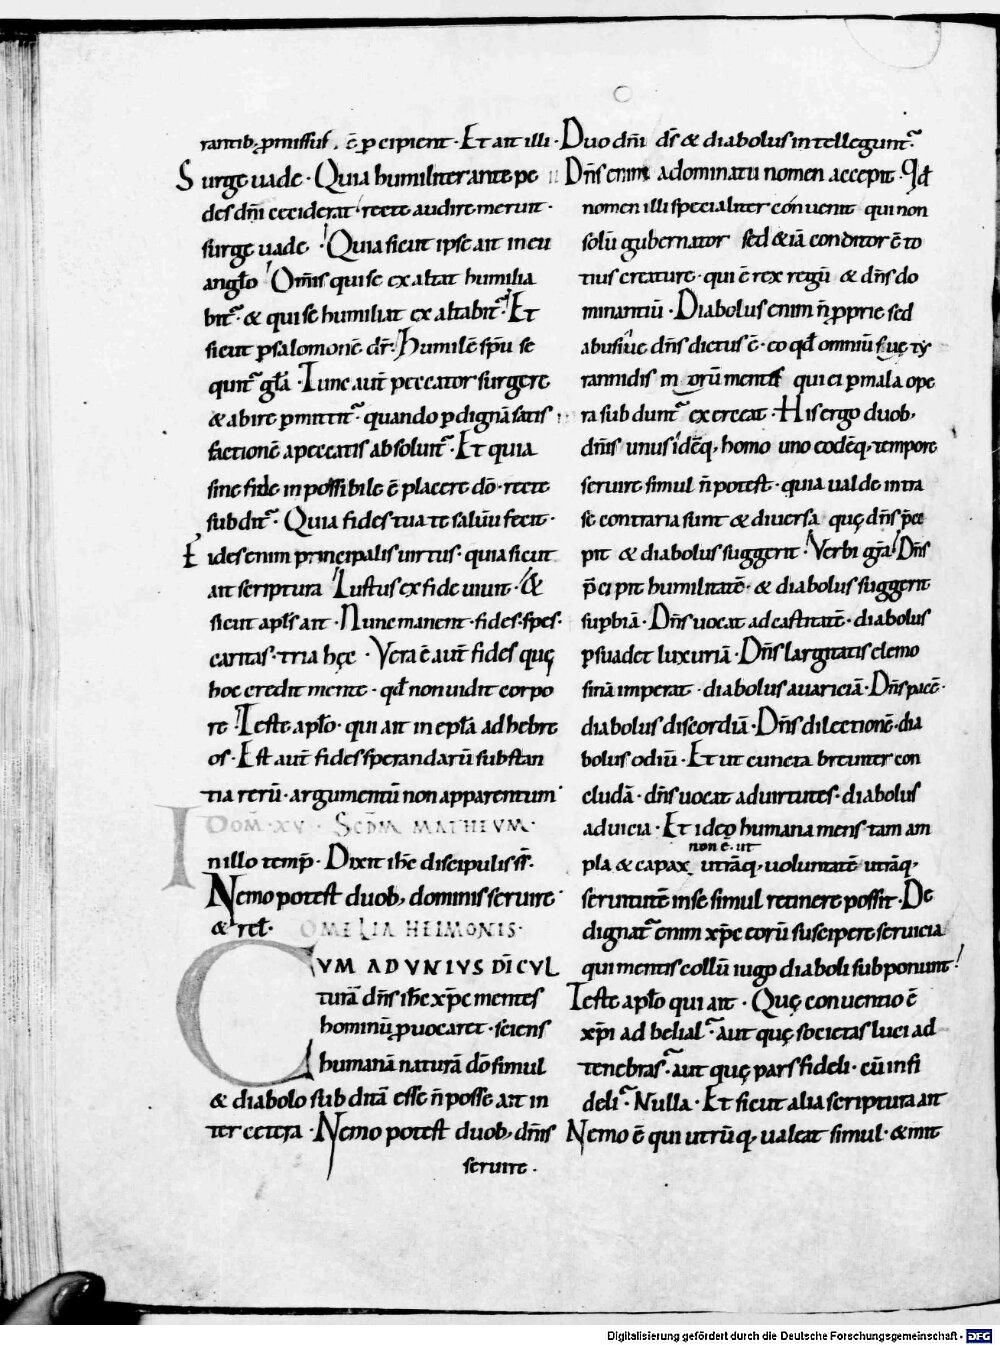 rantib; p̄missus. ē p̄cipient · Et ait illi ·
Surge uade · Quia humiliter ante pe
des dn̄i ceciderat · recte audire meruit ·
surge uade · Quia sicut ipse ait in eu
angl̄o · Om̄is qui se exaltat humilia
bit᷑ · & qui se humiliat exaltabit᷑ · Et
sicut p̱ salomonē dr̄ · Humilē sp̄u se
quit᷑ gl̄a · Tunc aut̄ peccator surgere
& abire p̱mittit᷑ · quando p̱ dignā satis
factionē a peccatis absoluit᷑ · Et quia
sine fide inpossibile ē placere dō · recte
subdit᷑ · Quia fides tua te saluū fecit ·
Fides enim principalis uirtus · quia sicut
ait scriptura Iustus ex fide uiuit · &
sicut apl̄s ait · Nunc manent · fides · spes ·
caritas · tria hęc · Vera ē aut̄ fides quę
hoc credit mente · qd̄ non uidit corpo
re · Teste apl̄o · qui ait in epl̄a ad hebre
os · Est aut̄ fides sperandarū substan
tia rerū · argumentū non apparentum ·
DOM̄ · XV · SCD̄M MATHEVM ·
In illo temp̄ · Dixit ihc̄ discipulis s̄s̄ ·
Nemo potest duob; dominis seruire ·
& rel̄ · OMELIA HEIMONIS ·
CVM AD VNIVS DĪ CVL
turā dn̄s ihc̄ xp̄c mentes
hominū p̱uocaret · sciens
humanā naturā dō simul
& diabolo subditā esse n̄ posse ait in
ter cetera · Nemo potest duob; dn̄is
seruire ·
Duo dn̄i ds̄ & diabolus intellegunt᷑ ·
Dn̄s enim a dominatu nomen accepit · Qd̄
nomen illi specialiter conuenit qui non
solū gubernator sed & iā conditor ē to
tius creature · qui ē rex regū & dn̄s do
minantiū · Diabolus enim n̄ p̱prie sed
abusiue dn̄s dictus ē · eo qd̄ omniū suę ty
rannidis mentes qui ei p̱ mala ope
ra subdunt᷑ execat · His ergo duob;
dn̄is unus idēq; homo uno eodēq; tempore
seruire simul n̄ potest · quia ualde intra
se contraria sunt & diuersa quę dn̄s p̄ce
pit & diabolus suggerit · Verbi gr̄a · Dn̄s
p̄cipit humilitatē · & diabolus suggerit
sup̱biā · Dn̄s uocat ad castitatē · diabolus
p̱suadet luxuriā · Dn̄s largitatis elemo
sinā imperat · diabolus auariciā · Dn̄s pacē ·
diabolus discordiā · Dn̄s dilectionē · dia
bolus odiū · Et ut cuncta breuiter con
cludā · dn̄s uocat ad uirtutes · diabolus
ad uicia · Et ideo humana mens tam am
non ē · ut
pla & capax utrāq; uoluntatē utrāq;
seruitutē in se simul retinere possit · De
dignat᷑ enim xp̄c eorū suscipere seruicia
qui mentis collū iugo diaboli subponunt ·
Teste apl̄o qui ait · Quę conuentio ē
xp̄i ad belial · aut quę societas luci ad
tenebras · aut quę pars fideli · cū infi
deli · Nulla · Et sicut alia scriptura ait
Nemo ē qui utrūq; ualeat simul · & init
Digitalisierung gefördert durch die Deutsche Forschungsgemeinschaft - DFG